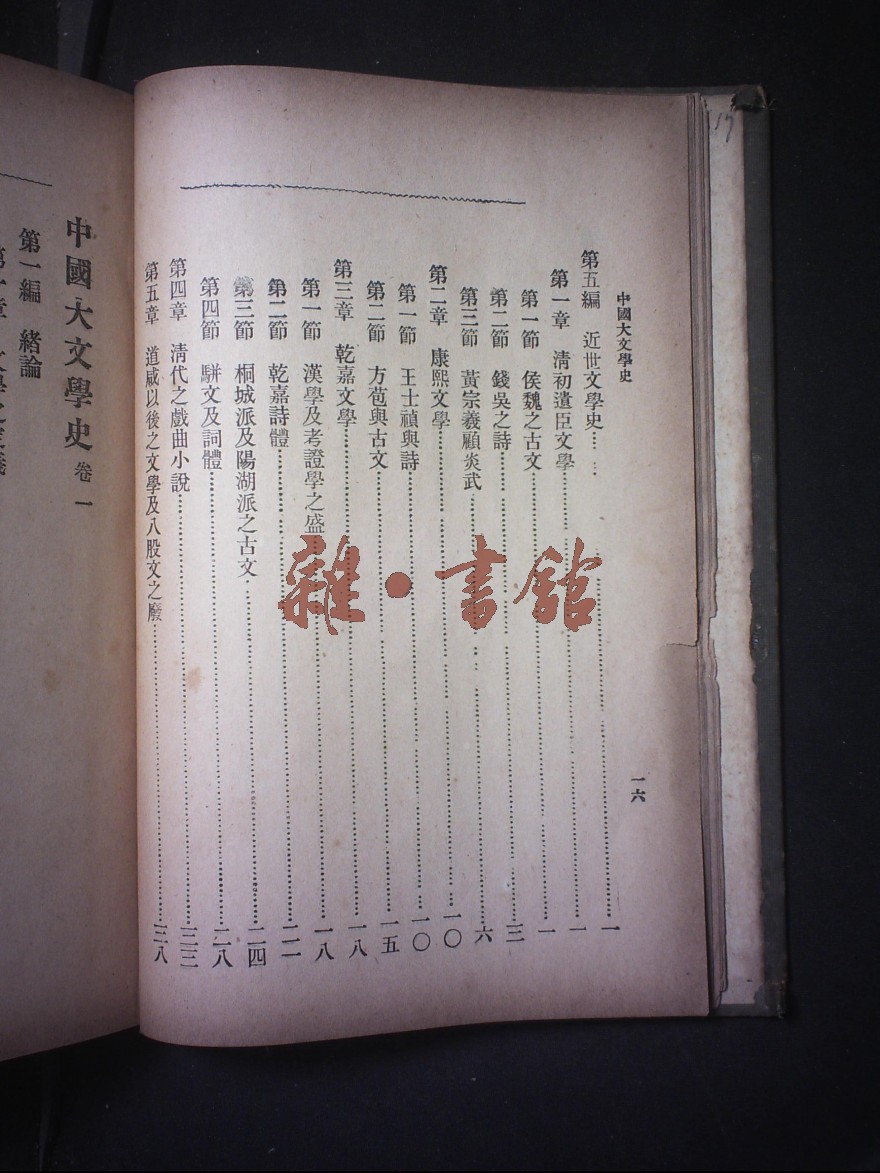 中國大文學史
一六
第五編 近世文學史……一
第一章 清初遺臣文學……一
第一節 侯魏之古文……一
第二節 錢吳之詩……三
第三節 黃宗羲顧炎武……六
第二章 康熙文學……一〇
第一節 王士禎與詩……一〇
第二節 方苞與古文……一五
第三章 乾嘉文學……一八
第一節 漢學及考證學之盛……一八
第二節 乾嘉詩體……二二
第三節 桐城派及陽湖派之古文……二四
第四節 駢文及詞體……二八
第四章 清代之戲曲小說……三三
第五章 道咸以後之文學及八股文之廢……三八
中國大文學史 卷一
第一編 緒論
雜·書館
17